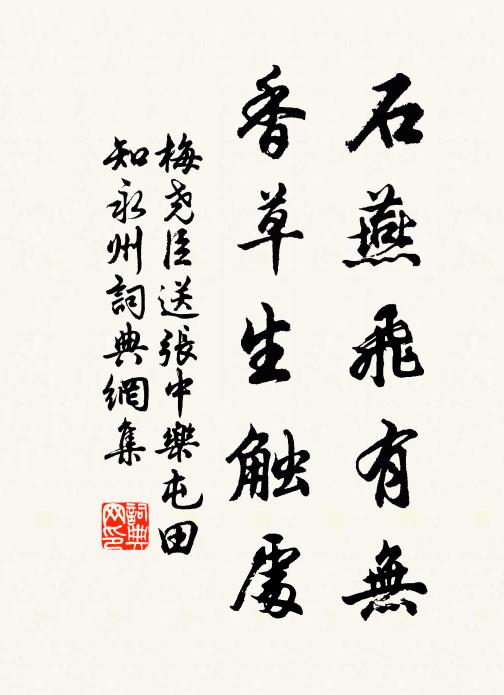 石燕飛有無
香草生触處
梅尧臣送張中樂屯田
知永州詞典網集
詞典
网印